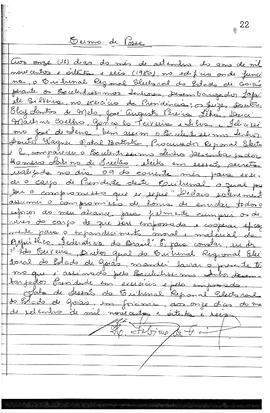 22
Termo de Posse
Aos onze (11) dias do mês de setembro do ano de mil
novecentos e oitenta e seis (1986), no edifício onde funcio
na o Tribunal Regional Eleitoral do Estado de Goiás
perante os Excelentíssimos Senhores Desembargador
de Silveira no exercício da Presidência; os juízes Doutores
Eloy Santos de Melo, José Augusto Pereira
Martins Coelho, Teixeira e Silva e
José de bem assim o Excelentíssimo Senhor
Doutor Wagner Natal Batista, Procurador Regional Eleito
ral, compareceu o Excelentíssimo Senhor Desembargador
Homero Sabino de Freitas, eleito em sessão
realizada no dia 09 do corrente mês, para exer
cer o cargo de Presidente deste Tribunal, o qual pres
tou o compromisso que se segue: "Declaro solenemente
assumir o compromisso de honra de envidar todos os
esforços ao meu alcance para fielmente cumprir os de
veres do cargo de que sou empossado e cooperar eficaz
mente para o engrandecimento moral e material da
República Federativa do Brasil". E para constar, eu
Diretor Geral do Tribunal Regional Elei
toral do Estado de Goiás, mandei lavrar o presente ter
mo que é assinado pelo Excelentíssimo Senhor Desem
bargador Presidente em exercício e pelo empossado.
Sala de Sessões do Tribunal Regional Eleitoral
do Estado de Goiás, em Goiânia, aos onze dias do mês
de setembro de mil novecentos e oitenta e seis.